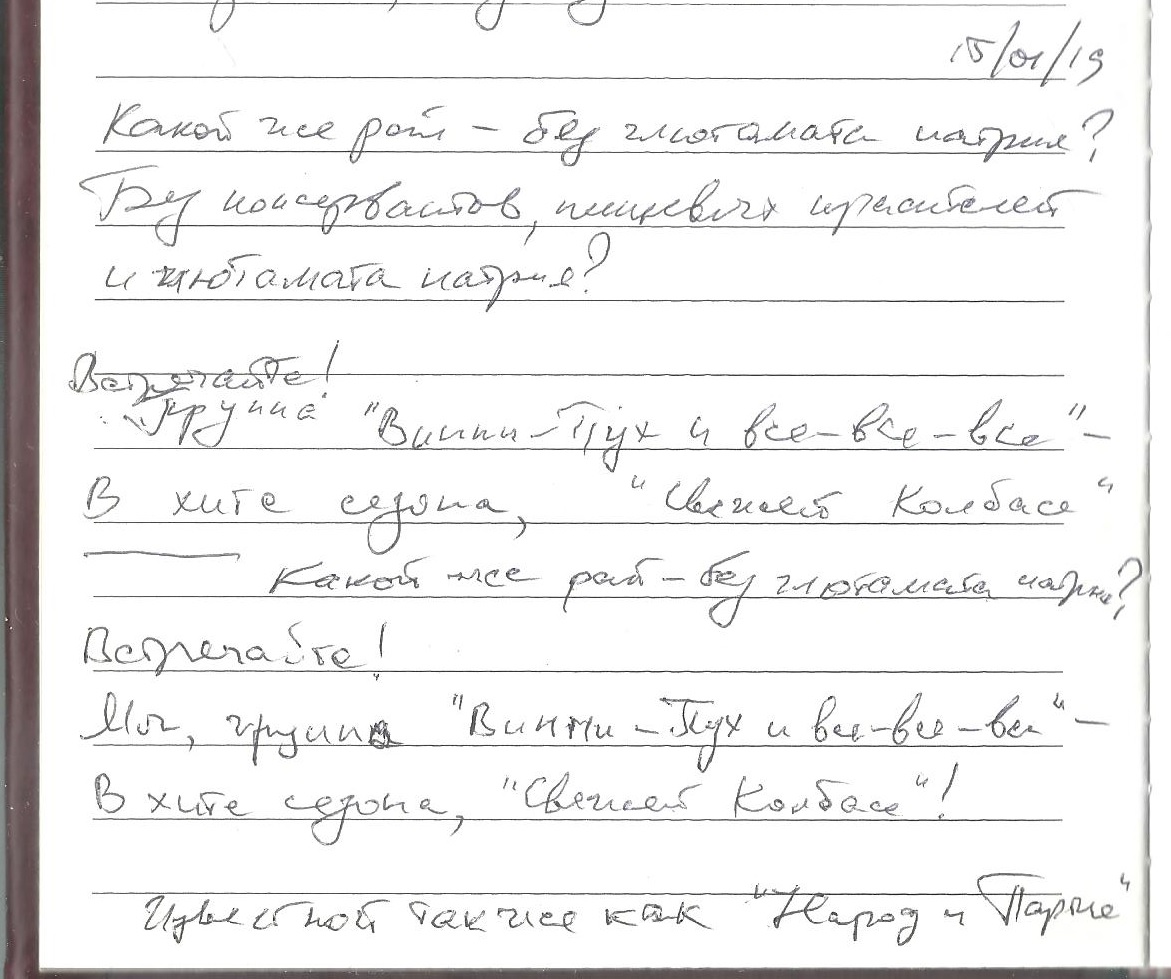 15/01/19
Какой же рай – без глютамата натрия?
Без консервантов, пищевых красителей
и глютамата натрия?
Встречайте!
Группа "Винни-Пух и все-все-все" –
В хите сезона, "Свежей Колбасе"
Какой же рай – без глютамата натрия?
Встречайте!
Мы, группа "Винни-Пух и все-все-все" –
В хите сезона, "Свежей Колбасе"!
Известной также как "Народ и Партие"